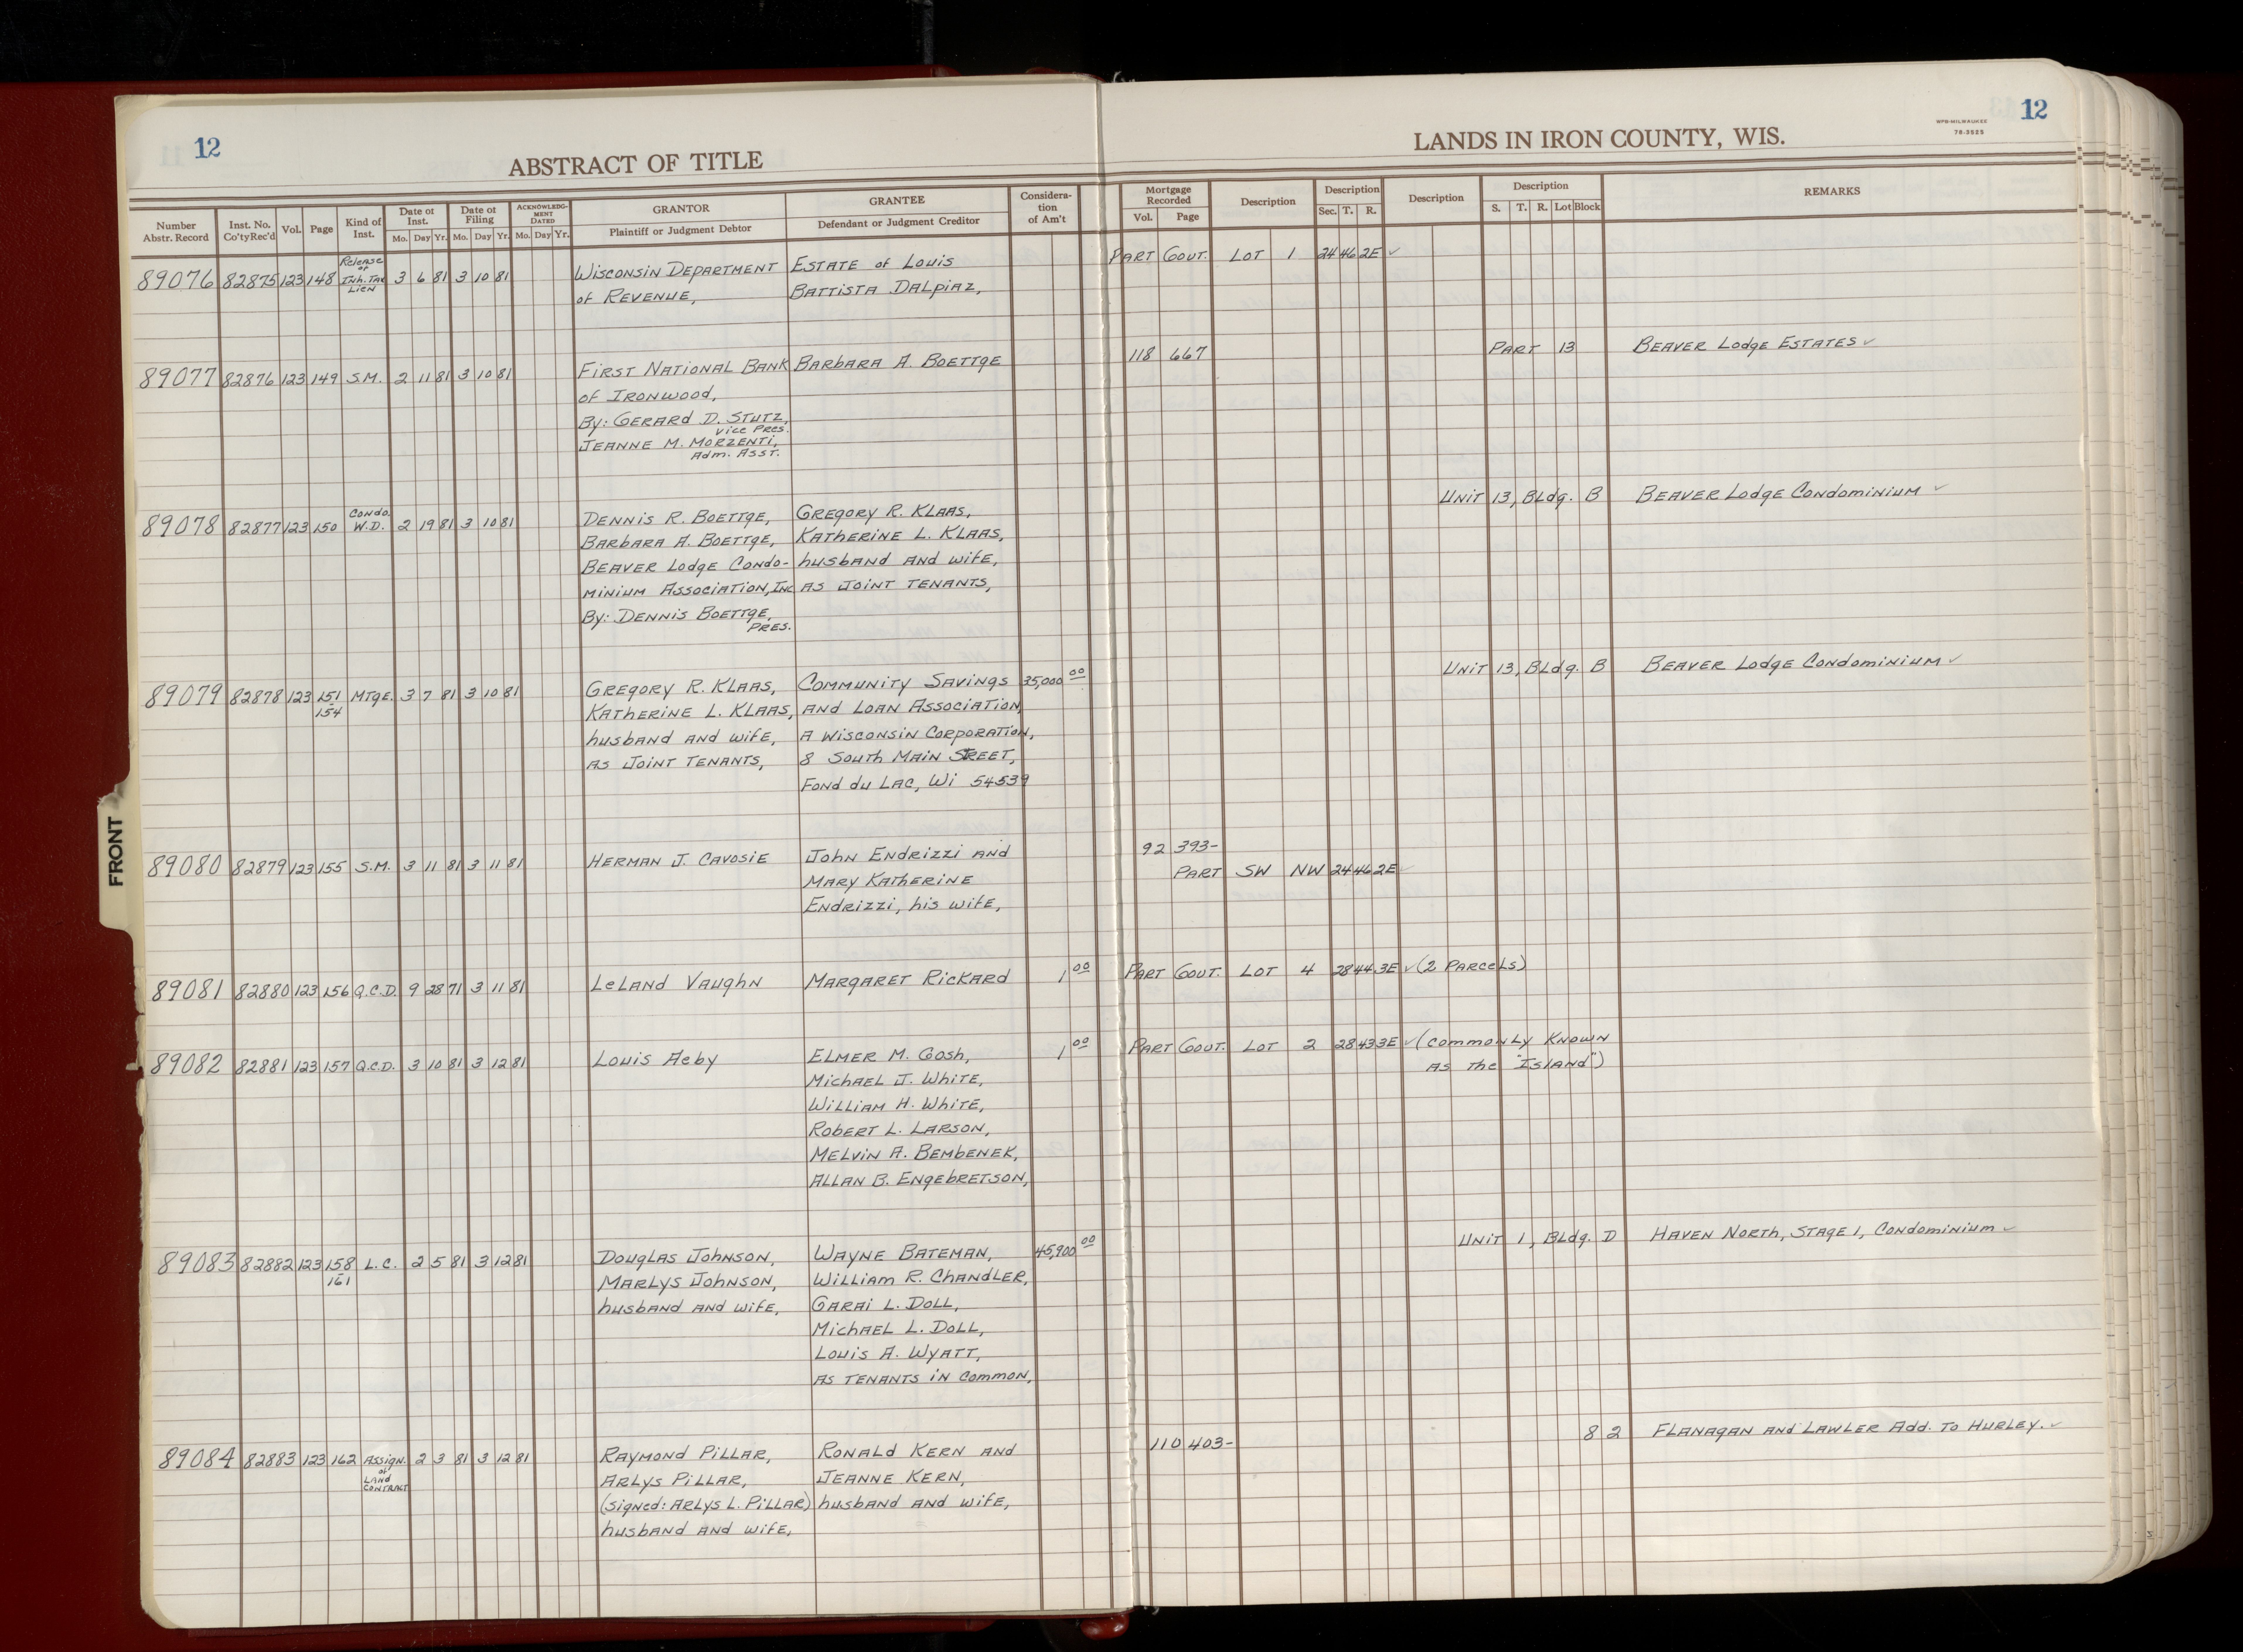 12
ABSTRACT OF TITLE
Number Abstr. Record
Inst. No. Co'ty Rec'd
Vol.
Page
Kind of Inst.
Date of Inst.
Mo. Day Yr.
Date of Filing
Mo. Day Yr.
ACKNOWLEDG-MENT DATED
Mo. Day Yr.
GRANTOR
Plaintiff or Judgment Debtor
GRANTEE
Defendant or Judgment Creditor
Considera-tion of Am't
LANDS IN IRON COUNTY, WIS.
WPB-MILWAUKEE
78-3525
12
Mortgage Recorded
Vol. Page
Description
Description
Sec. T. R.
Description
Description
S. T. R. Lot Block
REMARKS
89076 82875 123 148 Release of Inh. Tax Lien 3 6 81 3 10 81 Wisconsin Department Estate of Louis Part Gout. Lot 1 24 46 2E ✓
of Revenue, Battista Dalpiaz,
89077 82876 123 149 S.M. 2 11 81 3 10 81 First National Bank Barbara A. Boettge 118 667 Part 13 Beaver Lodge Estates ✓
of Ironwood,
By: Gerard D. Stutz,
Vice Pres.
Jeanne M. Morzenti,
Adm. Asst.
89078 82877 123 150 Condo. W.D. 2 19 81 3 10 81 Dennis R. Boettge, Gregory R. Klaas, Unit 13, Bldg. B Beaver Lodge Condominium ✓
Barbara A. Boettge, Katherine L. Klaas,
Beaver Lodge Condo- husband and wife,
minium Association, Inc as joint tenants,
By: Dennis Boettge,
Pres.
89079 82878 123 151-154 Mtge. 3 7 81 3 10 81 Gregory R. Klaas, Community Savings 35,000 00 Unit 13, Bldg. B Beaver Lodge Condominium ✓
Katherine L. Klaas, and Loan Association,
husband and wife, a Wisconsin Corporation,
as joint tenants, 8 South Main Street,
Fond du Lac, Wi 54539
89080 82879 123 155 S.M. 3 11 81 3 11 81 Herman J. Cavosie John Endrizzi and 92 393-
Mary Katherine Part SW NW 24 46 2E ✓
Endrizzi, his wife,
89081 82880 123 156 Q.C.D. 9 28 71 3 11 81 Leland Vaughn Margaret Rickard 1 00 Part Gout. Lot 4 28 44 3E ✓ (2 Parcels)
89082 82881 123 157 Q.C.D. 3 10 81 3 12 81 Louis Aeby Elmer M. Gosh, 1 00 Part Gout. Lot 2 28 43 3E ✓ (commonly known
Michael J. White, as the "Island")
William H. White,
Robert L. Larson,
Melvin A. Bembenek,
Allan B. Engebretson,
89083 82882 123 158-161 L.C. 2 5 81 3 12 81 Douglas Johnson, Wayne Bateman, 45,900 00 Unit 1, Bldg. D Haven North, Stage 1, Condominium ✓
Marlys Johnson, William R. Chandler,
husband and wife, Garai L. Doll,
Michael L. Doll,
Louis A. Wyatt,
as tenants in common,
89084 82883 123 162 Assign. of Land Contract 2 3 81 3 12 81 Raymond Pillar, Ronald Kern and 110 403- 8 2 Flanagan and Lawler Add. To Hurley. ✓
Arlys Pillar, Jeanne Kern,
(signed: Arlys L. Pillar) husband and wife,
husband and wife,
FRONT